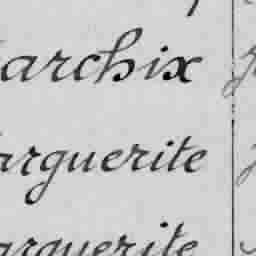 archix
arguerite
arguerite